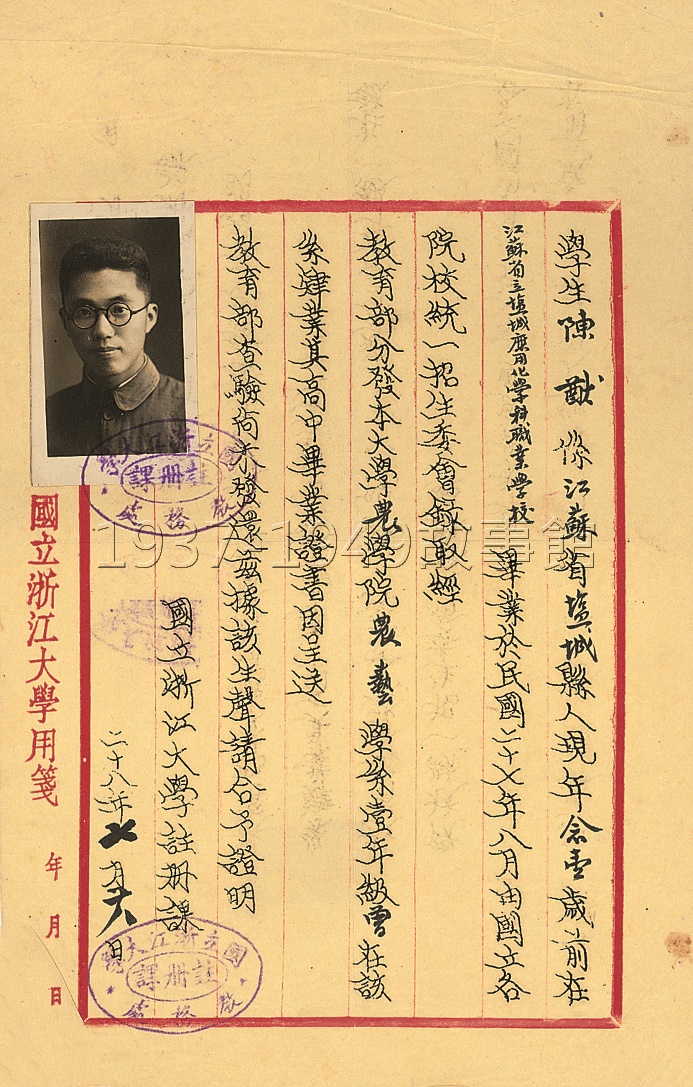 學生陳猷係江蘇省塩城縣人現年念壹歲前在
江蘇省立塩城應用化學科職業學校
畢業於民國二十七年八月由國立各
院校統一招生委會錄取經
教育部分發本大學農學院農藝學系壹年級曾在該
系肄業其高中畢業證書因呈送
教育部查驗尚未發還茲據該生聲請合予證明
國立浙江大學註册課
二十八年七月六日
國立浙江大學用箋 年 月 日
國立浙江大學
註册課
教務處
國立浙江大學
註册課
教務處
1937-1949故事館